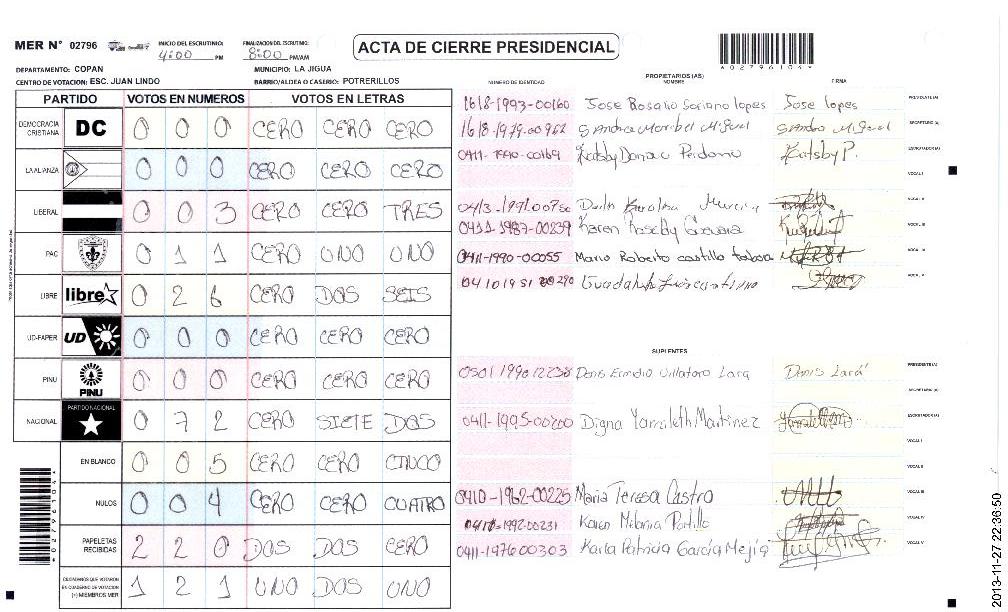 MER N° 02796 INICIO DEL ESCRUTINIO: 4:00 PM FINALIZACION DEL ESCRUTINIO: 8:00 PM/AM ACTA DE CIERRE PRESIDENCIAL *02796104*
DEPARTAMENTO: COPAN MUNICIPIO: LA JIGUA
CENTRO DE VOTACION: ESC. JUAN LINDO BARRIO/ALDEA O CASERIO: POTRERILLOS
PROPIETARIOS (AS)
NUMERO DE IDENTIDAD NOMBRE FIRMA
PARTIDO VOTOS EN NUMEROS VOTOS EN LETRAS
1618-1993-00160 Jose Rosalio Soriano lopes Jose lopes PRESIDENTE (A)
DEMOCRACIA CRISTIANA DC 0 0 0 CERO CERO CERO
1618-1979-00962 Sandra Maribel Miguel Sandra Miguel SECRETARIO (A)
0411-1990-00169 Katsby Katsby P. ESCRUTADOR (A)
LA ALIANZA 0 0 0 CERO CERO CERO
VOCAL I
LIBERAL 0 0 3 CERO CERO TRES
Karolina VOCAL II
Karen VOCAL III
PAC 0 1 1 CERO UNO UNO
0411-1990-00055 Mario Roberto castillo VOCAL IV
VOCAL V
LIBRE libre 0 2 6 CERO DOS SEIS
UD-FAPER UD 0 0 0 CERO CERO CERO
SUPLENTES
PINU PINU 0 0 0 CERO CERO CERO
0501 1990 12238 Denis Ermidio Villatoro Lara Denis Lara PRESIDENTE (A)
SECRETARIO (A)
NACIONAL PARTIDO NACIONAL 0 7 2 CERO SIETE DOS
0411-1995-00200 Digna Yamileth Martinez ESCRUTADOR (A)
VOCAL I
EN BLANCO 0 0 5 CERO CERO CINCO
VOCAL II
NULOS 0 0 4 CERO CERO CUATRO
0410-1962-00225 Maria Teresa Castro VOCAL III
Karen Milania Portillo VOCAL IV
PAPELETAS RECIBIDAS 2 2 0 DOS DOS CERO
0411-1976 00303 Karla Patricia Garcia Mejia VOCAL V
CIUDADANOS QUE VOTARON EN CUADERNO DE VOTACION (+) MIEMBROS MER 1 2 1 UNO DOS UNO
*02796104*
2013-11-27 22:36:50